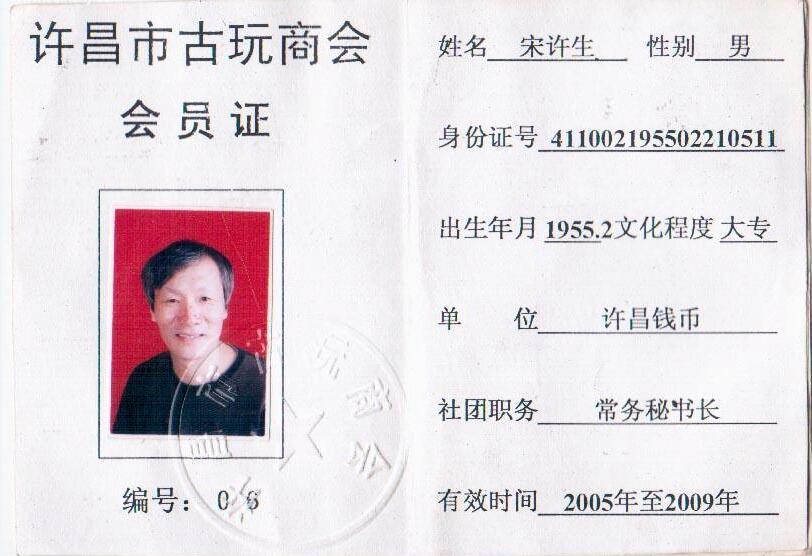 许昌市古玩商会
会员证
编号：06
姓名 宋许生 性别 男
身份证号 411002195502210511
出生年月 1955.2文化程度 大专
单 位 许昌钱币
社团职务 常务秘书长
有效时间 2005年至2009年